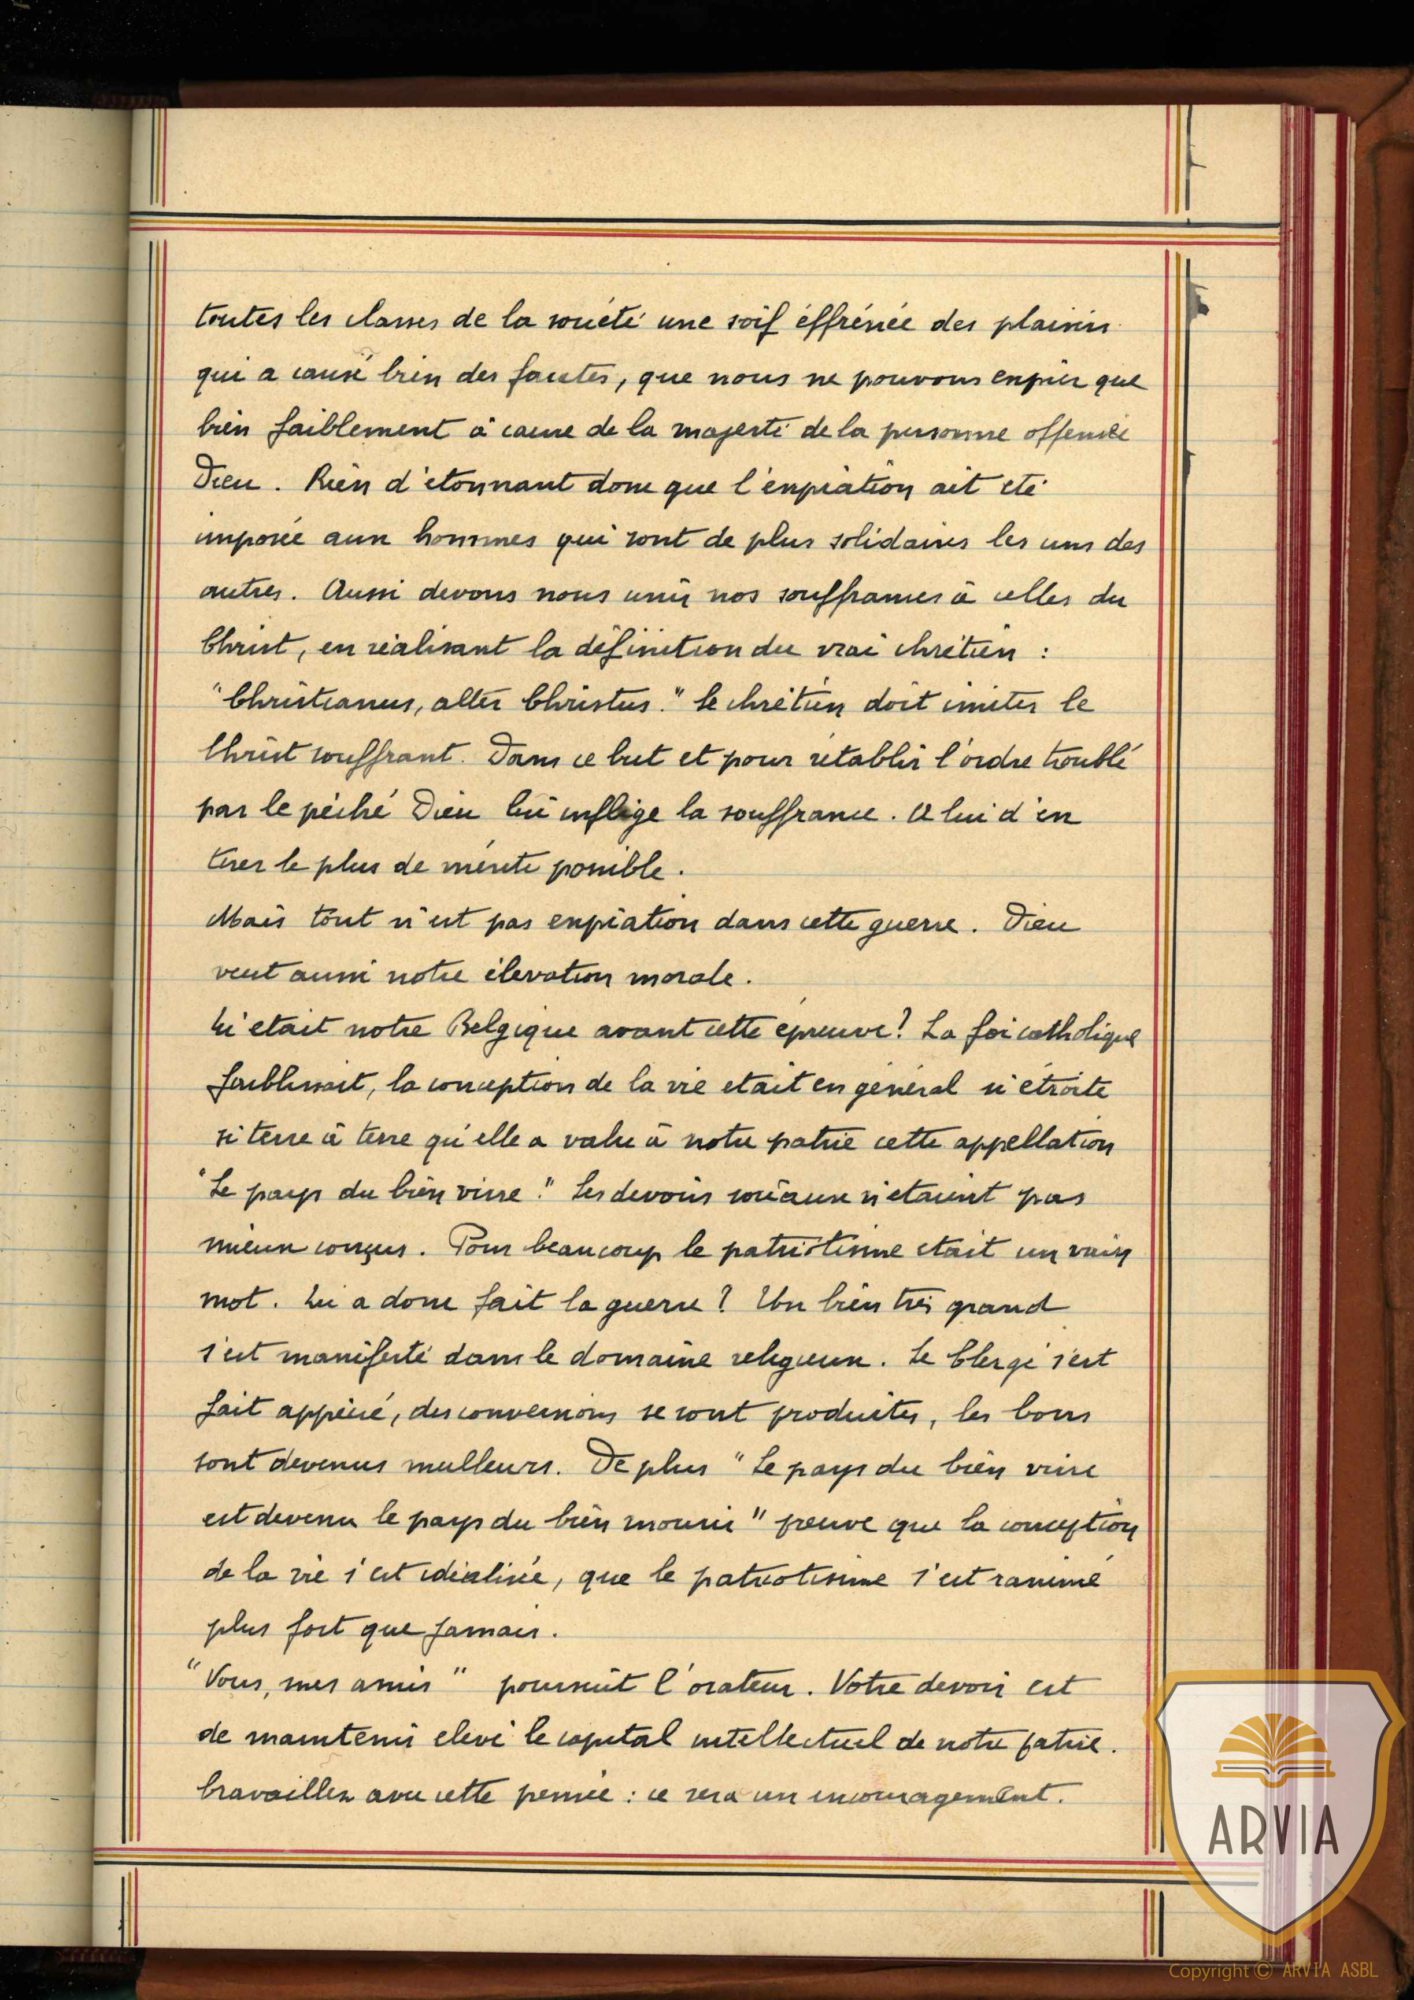 toutes les classes de la société une soif éffrénée des plaisirs
qui a causé bien des fautes, que nous ne pouvons expier que
bien faiblement à cause de la majesté de la personne offensée
Dieu. Rien d'étonnant donc que l'expiation ait eté
imposée aux hommes qui sont de plus solidaires les uns des
autres. Aussi devons nous unir nos souffrances à celles du
Christ, en réalisant la définition du vrai chrétien :
"Christianus, alter Christus." Le chrétien doit imiter le
Christ souffrant. Dans ce but et pour rétablir l'ordre troublé
par le péché Dieu lui inflige la souffrance. A lui d'en
tirer le plus de mérite possible.
Mais tout n'est pas expiation dans cette guerre. Dieu
veut aussi notre élevation morale.
Qu'etait notre Belgique avant cette épreuve? La foi catholique
faiblissait, la conception de la vie etait en général si étroite
si terre à terre qu'elle a valu à notre patrie cette appellation
"Le pays du bien vivre." Les devoirs sociaux n'etaient pas
mieux conçus. Pour beaucoup le patriotisme etait un vain
mot. Qu'a donc fait la guerre? Un bien très grand
s'est manifesté dans le domaine religieux. Le Clergé s'est
fait apprécié, des conversions se sont produites, les bons
sont devenus meilleurs. De plus "Le pays du bien vivre
est devenu le pays du bien mourir" preuve que la conception
de la vie s'est idéalisée, que le patriotisme s'est ranimé
plus fort que jamais.
"Vous, mes amis" poursuit l'orateur. Votre devoir est
de maintenir elevé le capital intellectuel de notre patrie.
Travaillez avec cette pensée : ce sera un encouragement.
ARVIA
Copyright © ARVIA ASBL